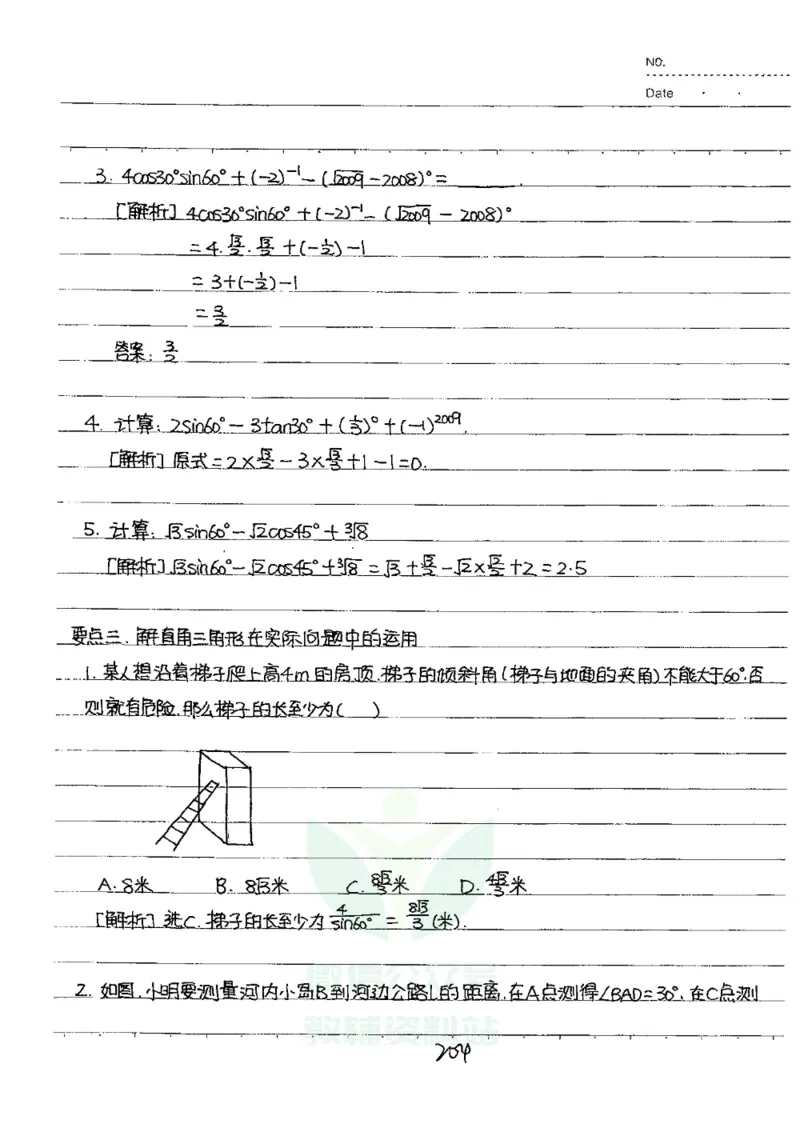 NO.
Date
3. 4cos30°sin60°+(-2)⁻¹-(√2009-2008)°=______.
[解析] 4cos30°sin60°+(-2)⁻¹-(√2009-2008)°
=4·√3/2·√3/2+(-1/2)-1
=3+(-1/2)-1
=3/2
答案: 3/2
4. 计算: 2sin60°-3tan30°+(1/3)°+(-1)²⁰⁰⁹.
[解析] 原式=2×√3/2-3×√3/3+1-1=0.
5. 计算: √3sin60°-√2cos45°+³√8
[解析] √3sin60°-√2cos45°+³√8=√3+√3/2-√2×√2/2+2=2.5
要点三. 解直角三角形在实际问题中的运用
1. 某人想沿着梯子爬上高4m的房顶,梯子的倾斜角(梯子与地面的夹角)不能大于60°,否
则就有危险,那么梯子的长至少为( )
A. 8米 B. 8√3米 C. 8√3/3米 D. 4√3/3米
[解析] 选C. 梯子的长至少为 4/sin60° = 8√3/3 (米).
微信公众号
2. 如图,小明要测量河内小岛B到河边公路l的距离,在A点测得∠BAD=30°,在C点测
教辅资料站
204